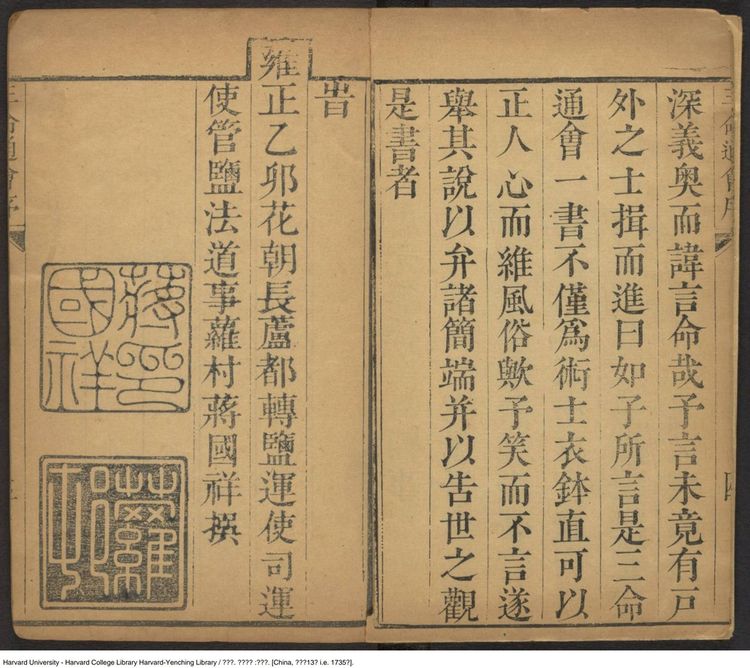 三命通會序
深義奥而諱言命哉予言未竟有戸
外之士揖而進曰如子所言是三命
通會一書不僅爲術士衣鉢直可以
正人心而維風俗歟予笑而不言遂
舉其說以弁諸簡端并以告世之觀
是書者
旹
雍正乙卯花朝長蘆都轉鹽運使司運
使管鹽法道事蘿村蔣國祥撰
蔣印國祥
蘿邨
三命通會序
Harvard University - Harvard College Library Harvard-Yenching Library / ???. ???? :???. [China, ???13? i.e. 1735?].